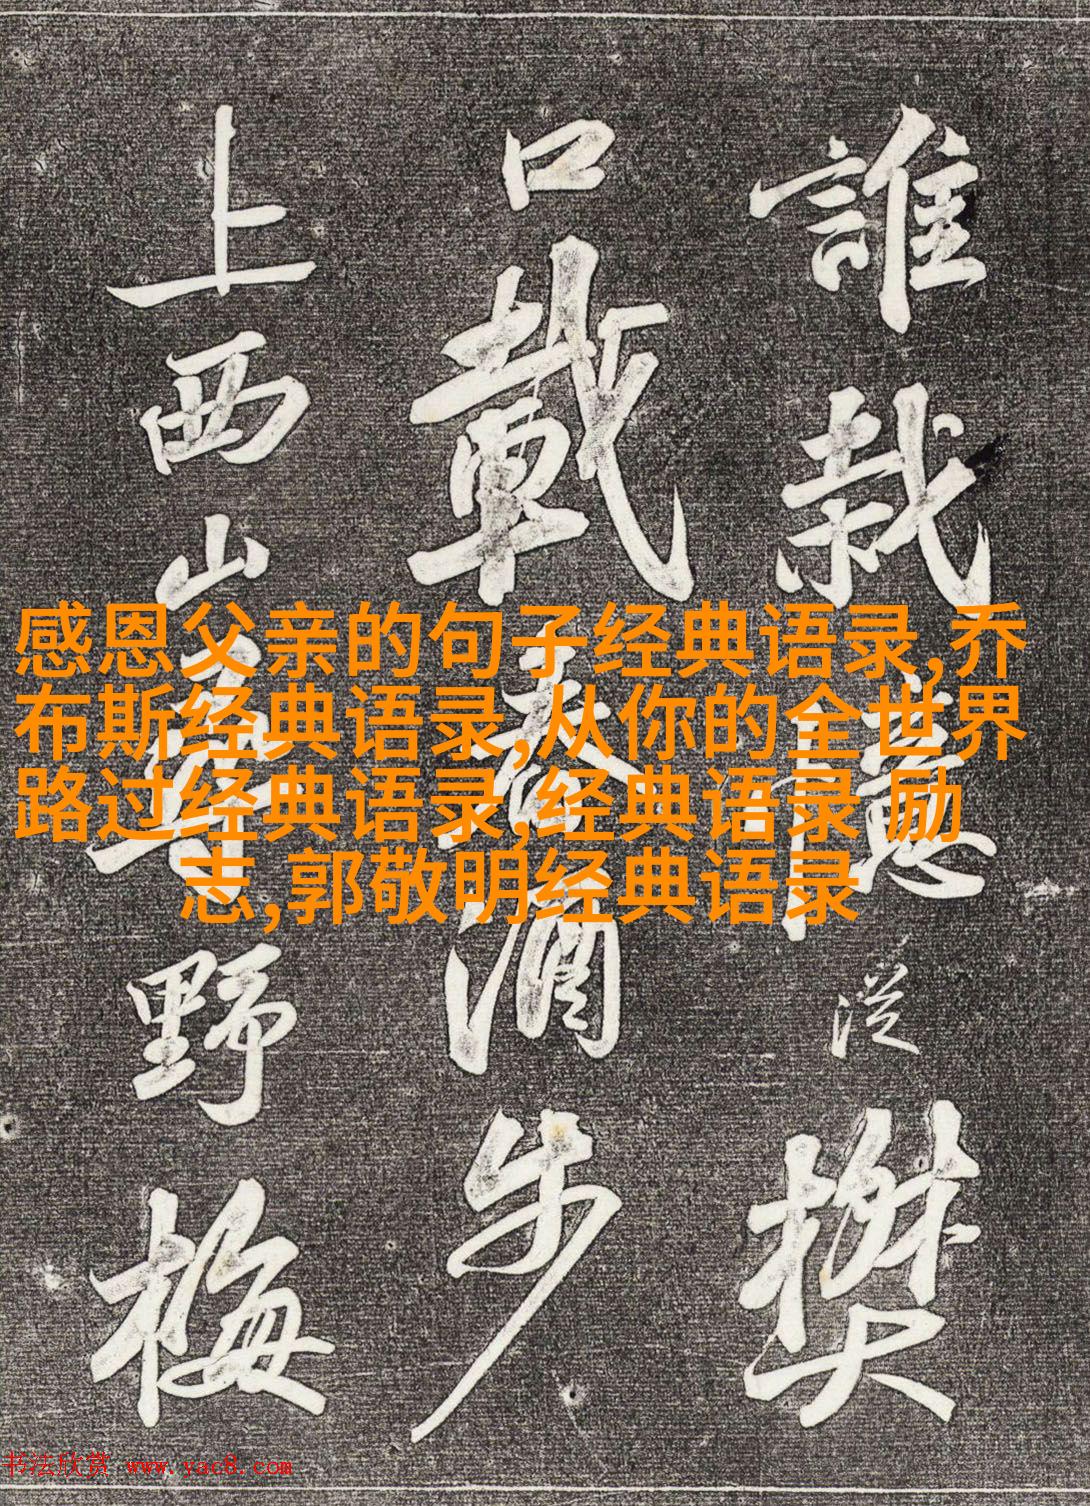 誰栽憶從樊
口載春酒步
上西山尋野梅
感恩父亲的句子经典语录,乔
布斯经典语录,从你的全世界
路过经典语录,经典语录 励
志,郭敬明经典语录
书法欣赏 www.yac8.com